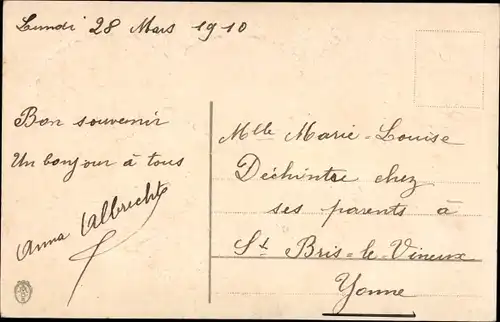 Lundi 28 Mars 1910
Bon souvenir
Un bonjour à tous
Anna Albrecht
Mlle Marie-Louise
Déchintre chez
ses parents à
St Bris-le-Vineux
Yonne